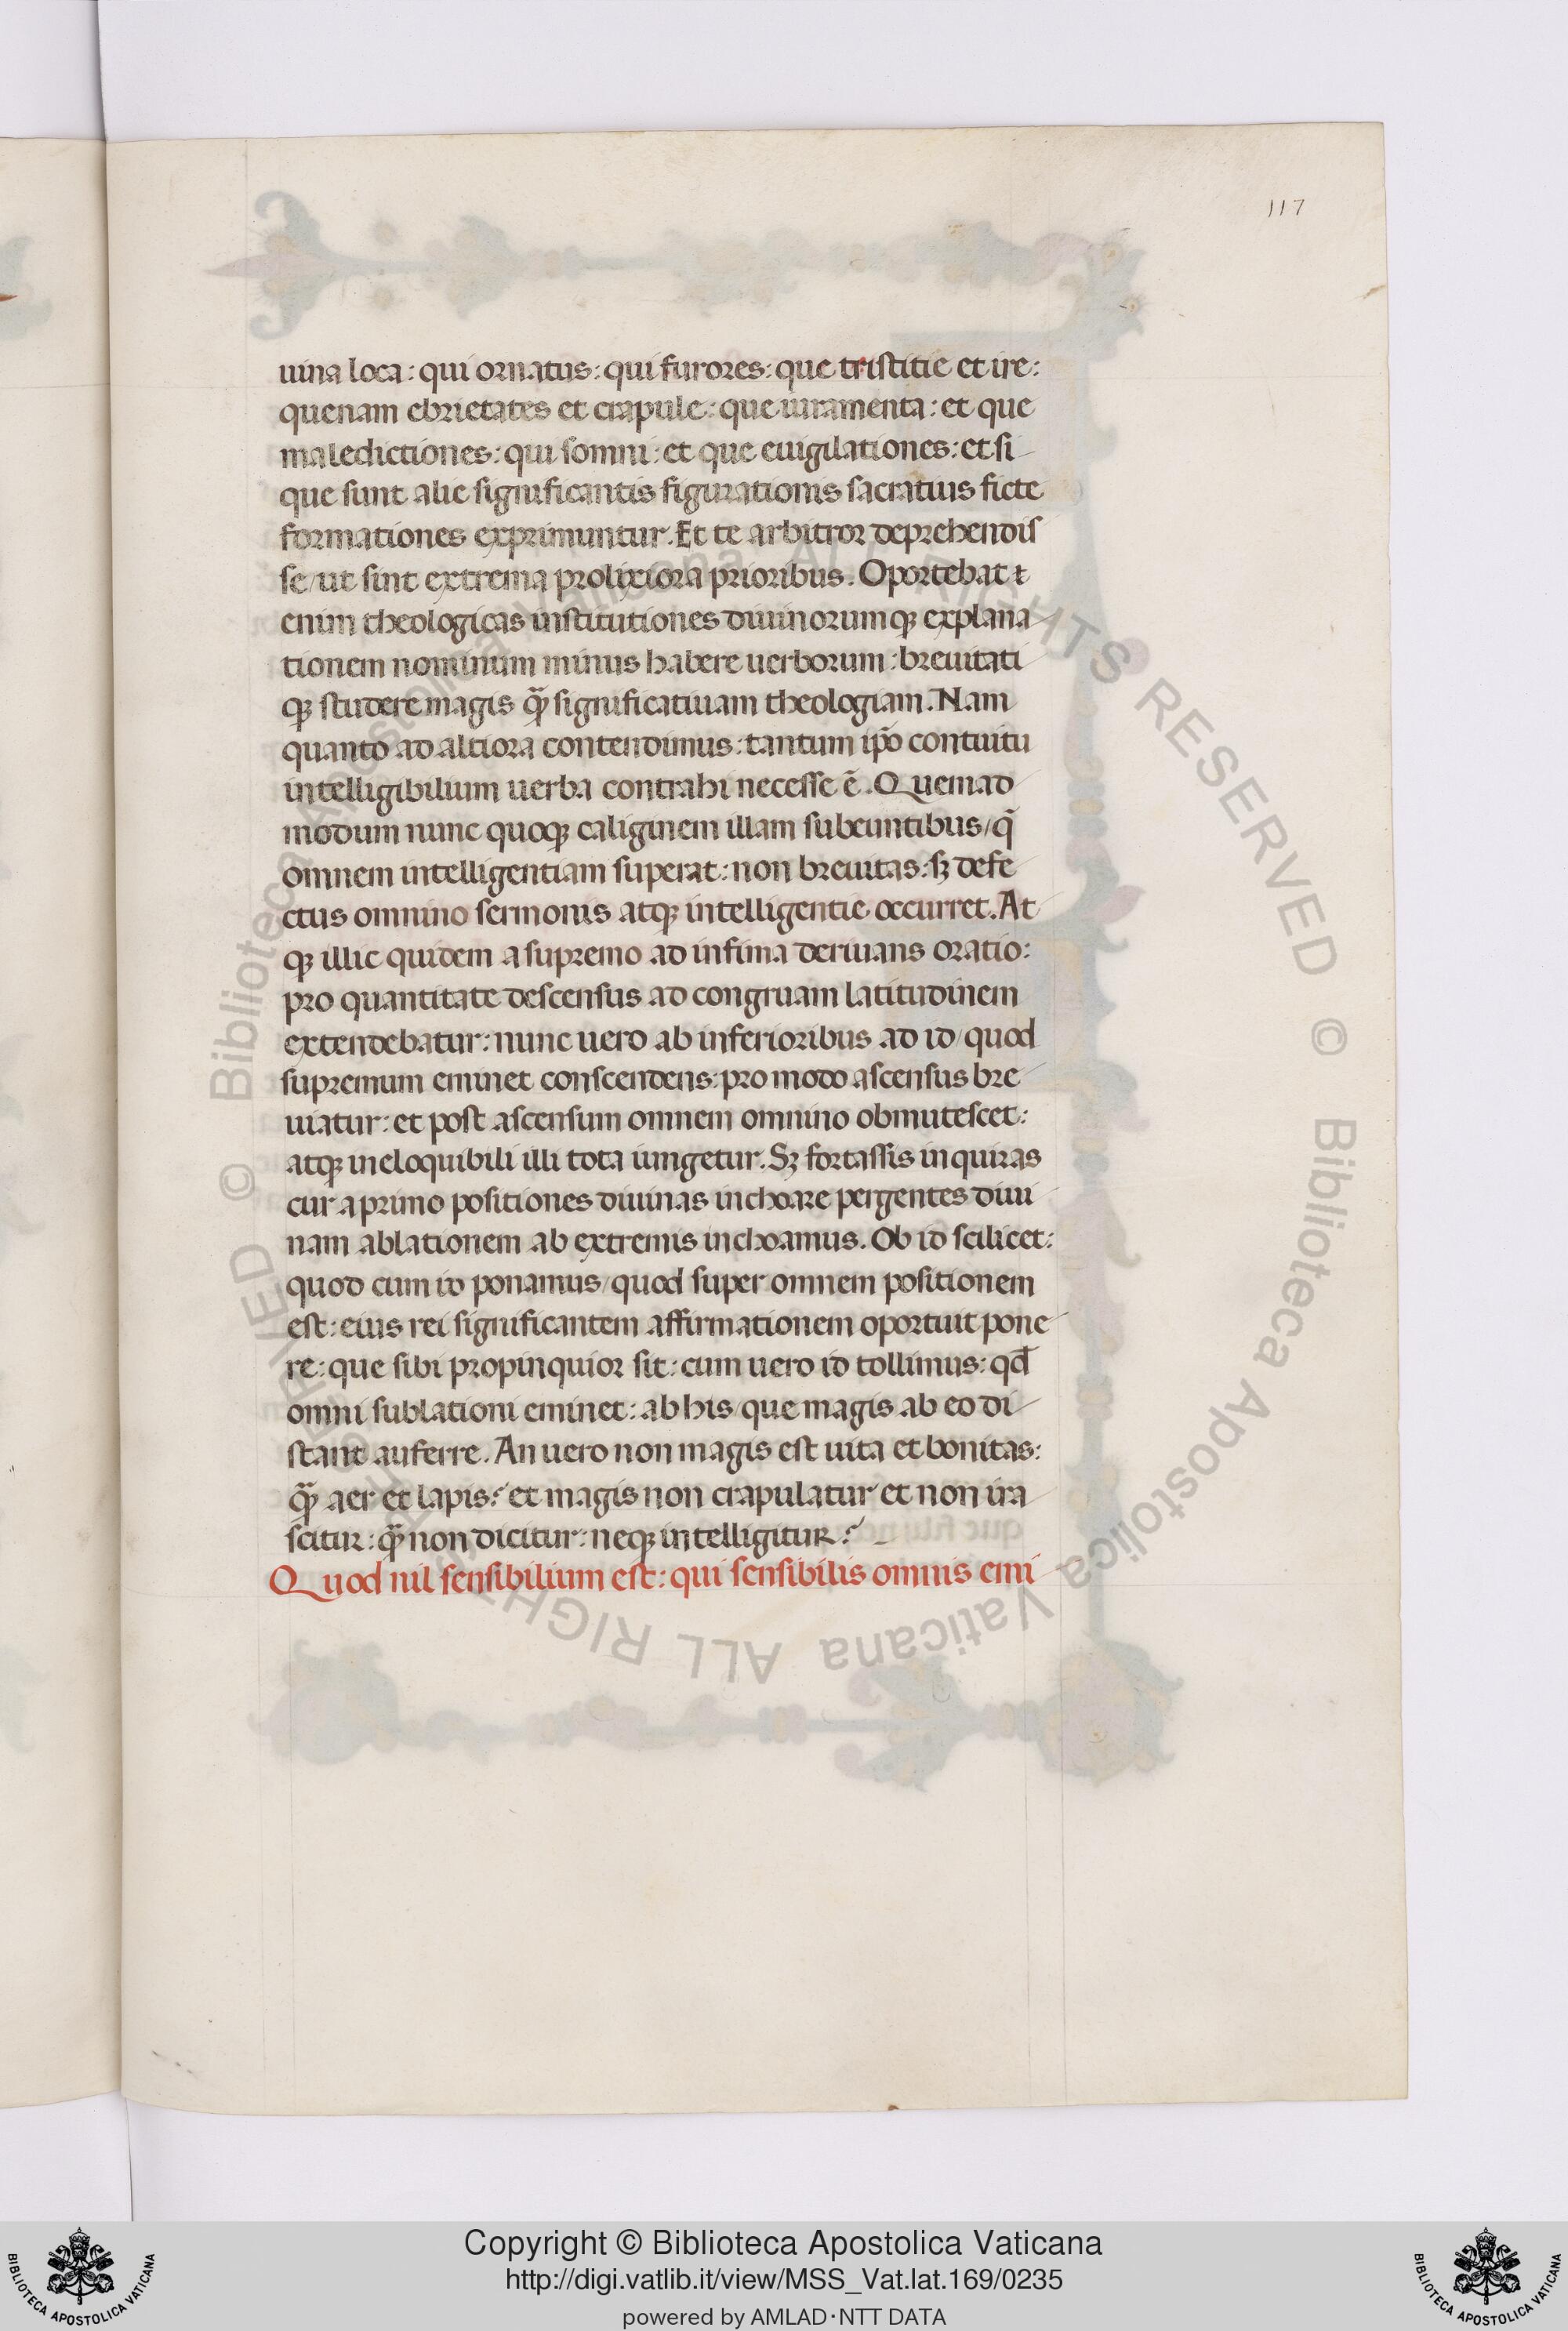 117
uina loca: qui ornatus: qui furores: que tristitie et ire:
quenam ebrietates et crapule: que iuramenta: et que
maledictiones: qui somni: et que euigilationes: et si
que sunt alie significantis figurationis sacratius ficte
formationes exprimuntur. Et te arbitror deprehendis
se/ut sint extrema prolixiora prioribus. Oportebat &
enim theologicas institutiones diuinorumqꝫ explana
tionem nominum minus habere uerborum: breuitati
qꝫ studere magis qꝫ̃ significatiuam theologiam. Nam
quanto ad altiora contendimus: tantum ip̃o contuitu
intelligibilium uerba contrahi necesse ẽ. Quemad
modum nunc quoqꝫ caliginem illam subeuntibus/q̃
omnem intelligentiam superat: non breuitas: sꝫ defe
ctus omnino sermonis atqꝫ intelligentie occurret. At
qꝫ illic quidem a supremo ad infima deriuans oratio:
pro quantitate descensus ad congruam latitudinem
extendebatur: nunc uero ab inferioribus ad id/quod
supremum eminet conscendens: pro modo ascensus bre
uiatur: et post ascensum omnem omnino obmutescet:
atqꝫ ineloquibili illi tota iungetur. Sꝫ fortassis inquiras
cur a primo positiones diuinas inchoare pergentes diui
nam ablationem ab extremis inchoamus. Ob id scilicet:
quod cum id ponamus/quod super omnem positionem
est: eius rei significantem affirmationem oportuit pone
re: que sibi propinquior sit: cum uero id tollimus: qđ
omni sublationi eminet: ab his/que magis ab eo di
stant auferre. An uero non magis est uita et bonitas:
qꝫ̃ aer et lapis? et magis non crapulatur et non ira
scitur: qꝫ̃ non dicitur: neqꝫ intelligitur?
Quod nil sensibilium est: qui sensibilis omnis emi
© Biblioteca Apostolica Vaticana ALL RIGHTS RESERVED © Biblioteca Apostolica Vaticana ALL RIGHTS RESERVED
Copyright © Biblioteca Apostolica Vaticana
http://digi.vatlib.it/view/MSS_Vat.lat.169/0235
powered by AMLAD·NTT DATA
BIBLIOTECA APOSTOLICA VATICANA
BIBLIOTECA APOSTOLICA VATICANA